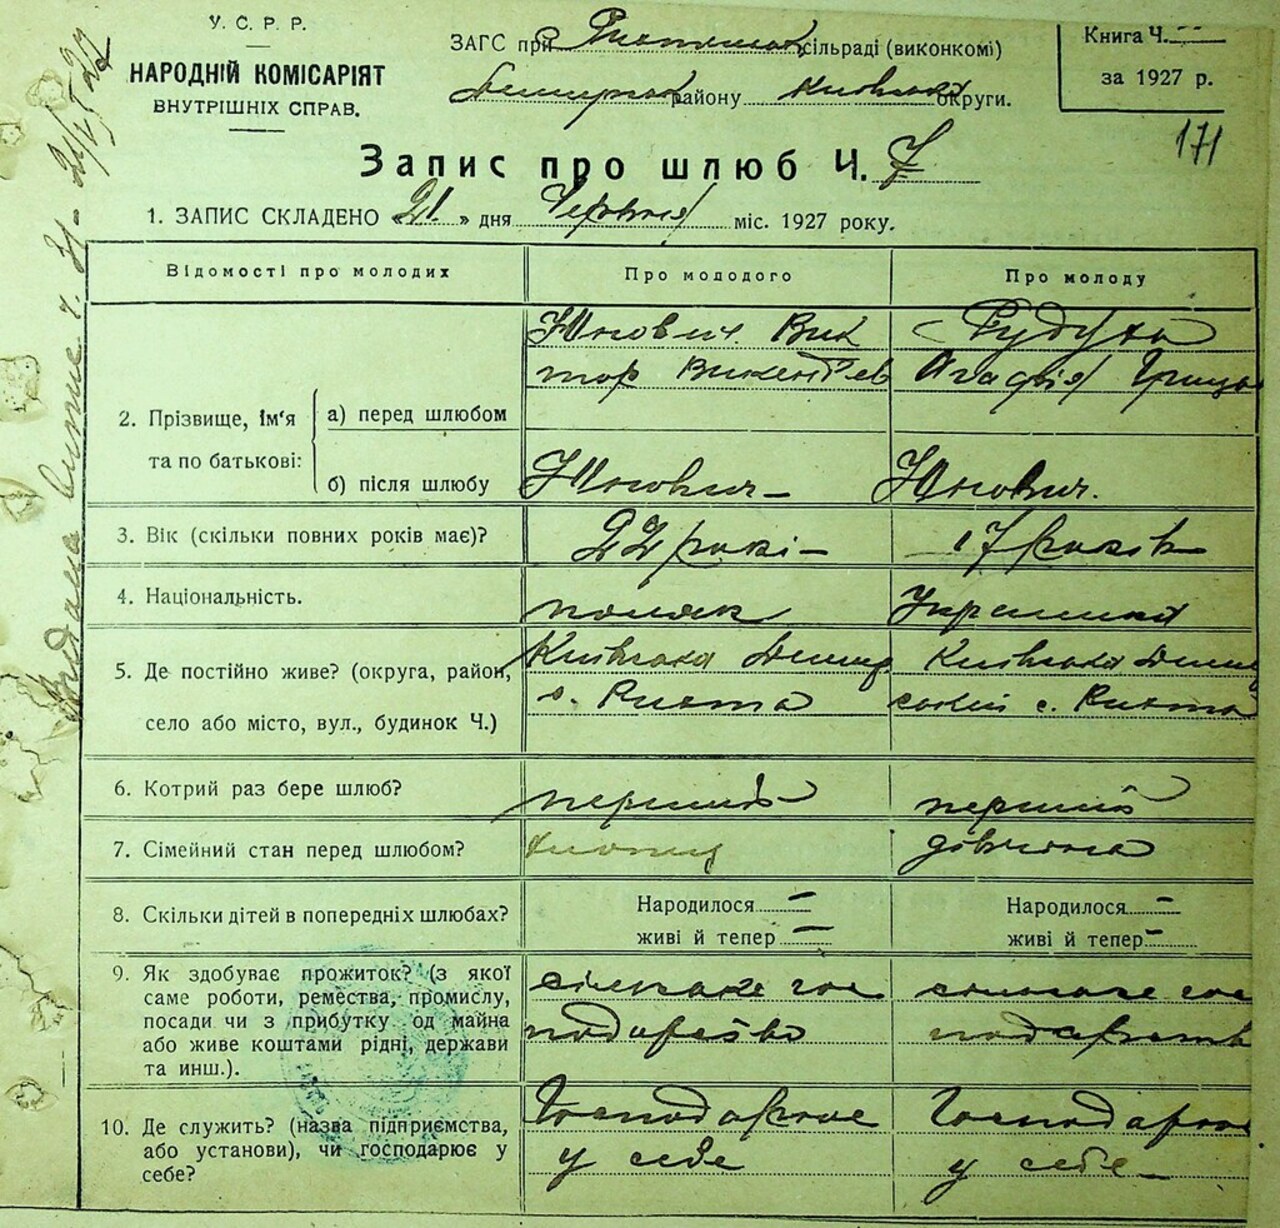 У. С. Р. Р.
НАРОДНІЙ КОМІСАРІЯТ
ВНУТРІШНІХ СПРАВ.
ЗАГС при сільраді (виконкомі)
району Київська округи.
Книга Ч.
за 1927 р.
171
Запис про шлюб Ч. 7
1. ЗАПИС СКЛАДЕНО «21» дня Червня міс. 1927 року.
Відомості про молодих Про молодого Про молоду
2. Прізвище, ім‘я та по батькові:
а) перед шлюбом
Юнович Вик Рудуха
тор Викентьев Агафія Грицьк
б) після шлюбу Юнович – Юнович.
3. Вік (скільки повних років має)? 22 рокі – 17 років
4. Національність. поляк Українка
5. Де постійно живе? (округа, район, Київська Димир Київська Димир
село або місто, вул., будинок Ч.) с. Рихта ський с. Рихта
6. Котрий раз бере шлюб? перший перший
7. Сімейний стан перед шлюбом? хлопец дівчина
8. Скільки дітей в попередніх шлюбах? Народилося – Народилося –
живі й тепер – живі й тепер –
9. Як здобуває прожиток? (з якої
саме роботи, ремества, промислу,
посади чи з прибутку од майна
або живе коштами рідні, держави
та инш.).
сільське гос сільське гос
подарство подарств
10. Де служить? (назва підприємства,
або установи), чи господарює у
себе?
Господарює Господарює
у себе у себе –